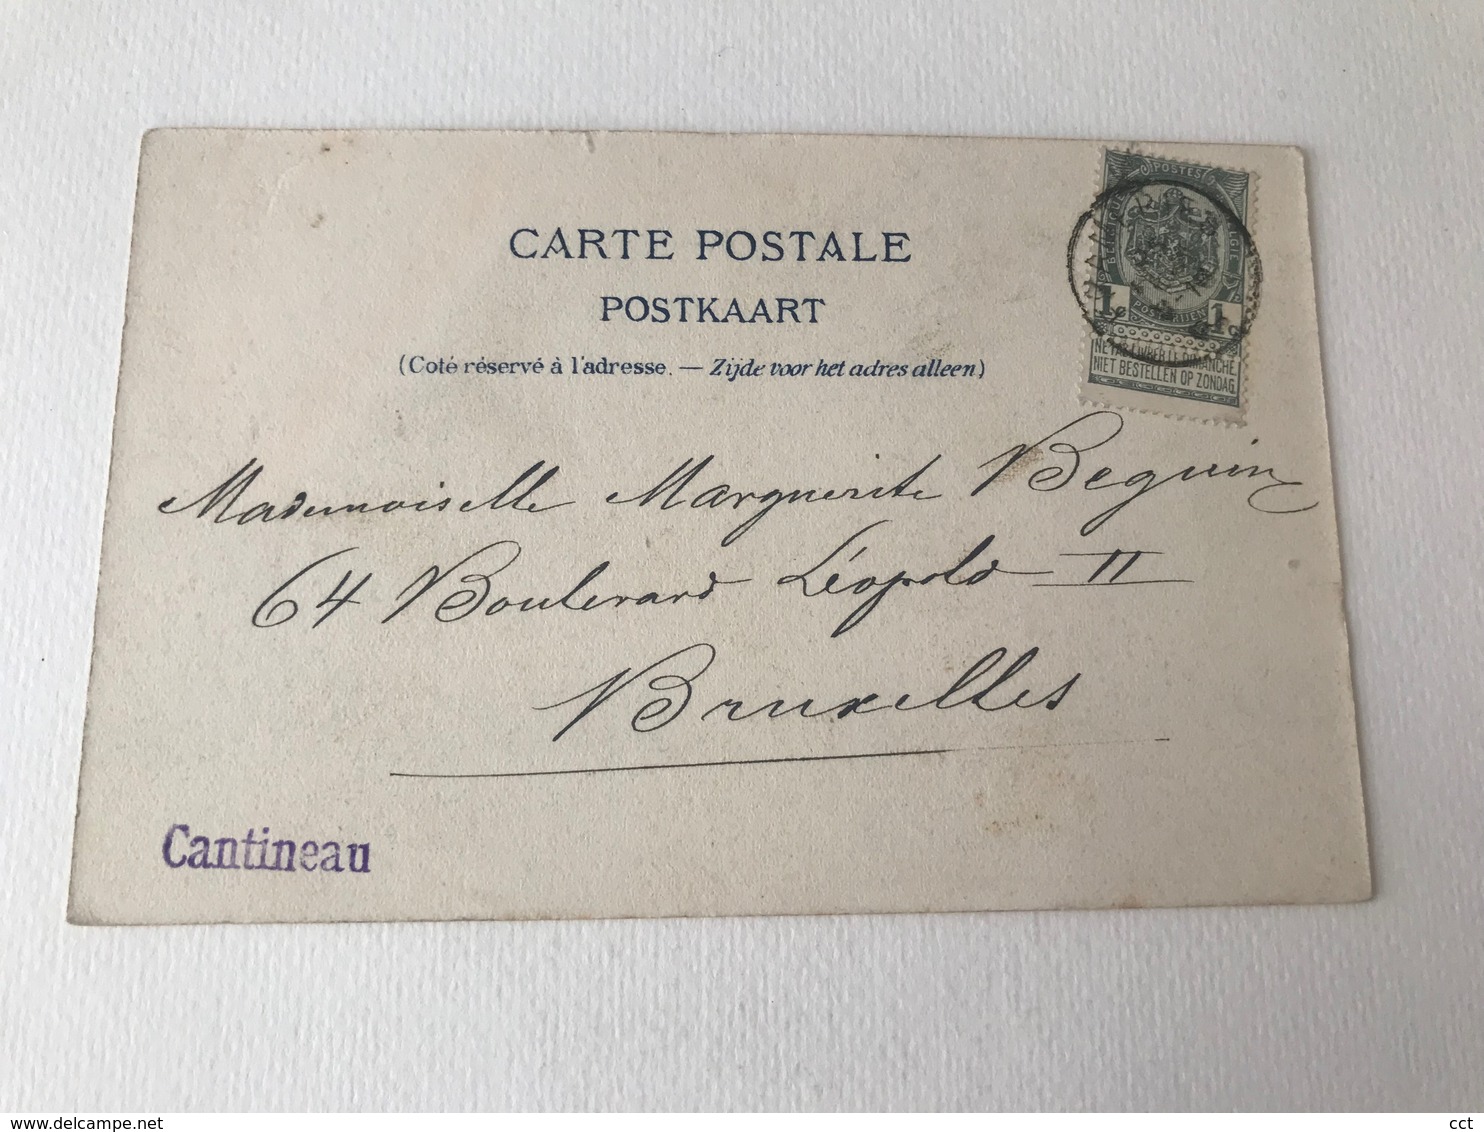 CARTE POSTALE
POSTKAART
(Coté réservé à l'adresse. — Zijde voor het adres alleen)
POSTES
BELGIQUE BELGIE
1c 1c
POSTERIJEN
NE PAS LIVRER LE DIMANCHE
NIET BESTELLEN OP ZONDAG
Mademoiselle Marguerite Beguin
64 Boulevard Léopold II
Bruxelles
Cantineau
www.delcampe.net
cct